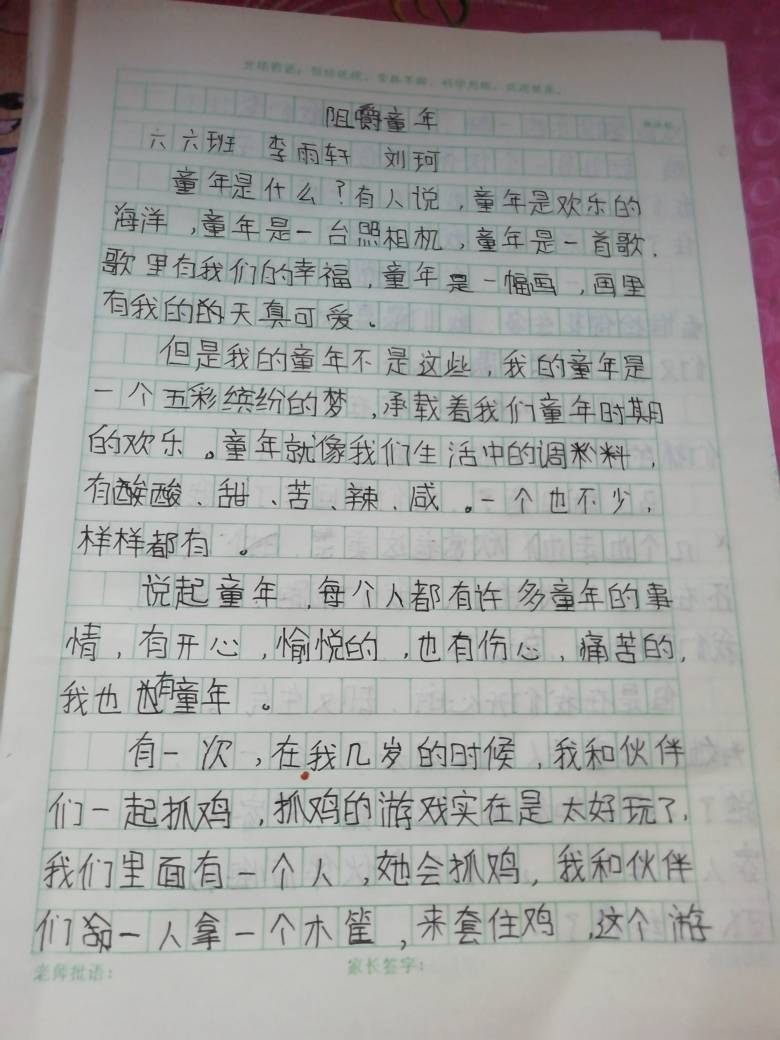 阻嚼童年
六六班 李雨轩 刘珂
童年是什么？有人说，童年是欢乐的
海洋，童年是一台照相机，童年是一首歌，
歌里有我们的幸福，童年是一幅画，画里
有我的的天真可爱。
但是我的童年不是这些，我的童年是
一个五彩缤纷的梦，承载着我们童年时期
的欢乐。童年就像我们生活中的调料料，
有酸酸、甜、苦、辣、咸。一个也不少，
样样都有。
说起童年，每个人都有许多童年的事
情，有开心，愉悦的，也有伤心，痛苦的，
我也有童年。
有一次，在我几岁的时候，我和伙伴
们一起抓鸡，抓鸡的游戏实在是太好玩了，
我们里面有一个人，她会抓鸡，我和伙伴
们一人拿一个木筐，来套住鸡，这个游
老师批语：
家长签字：